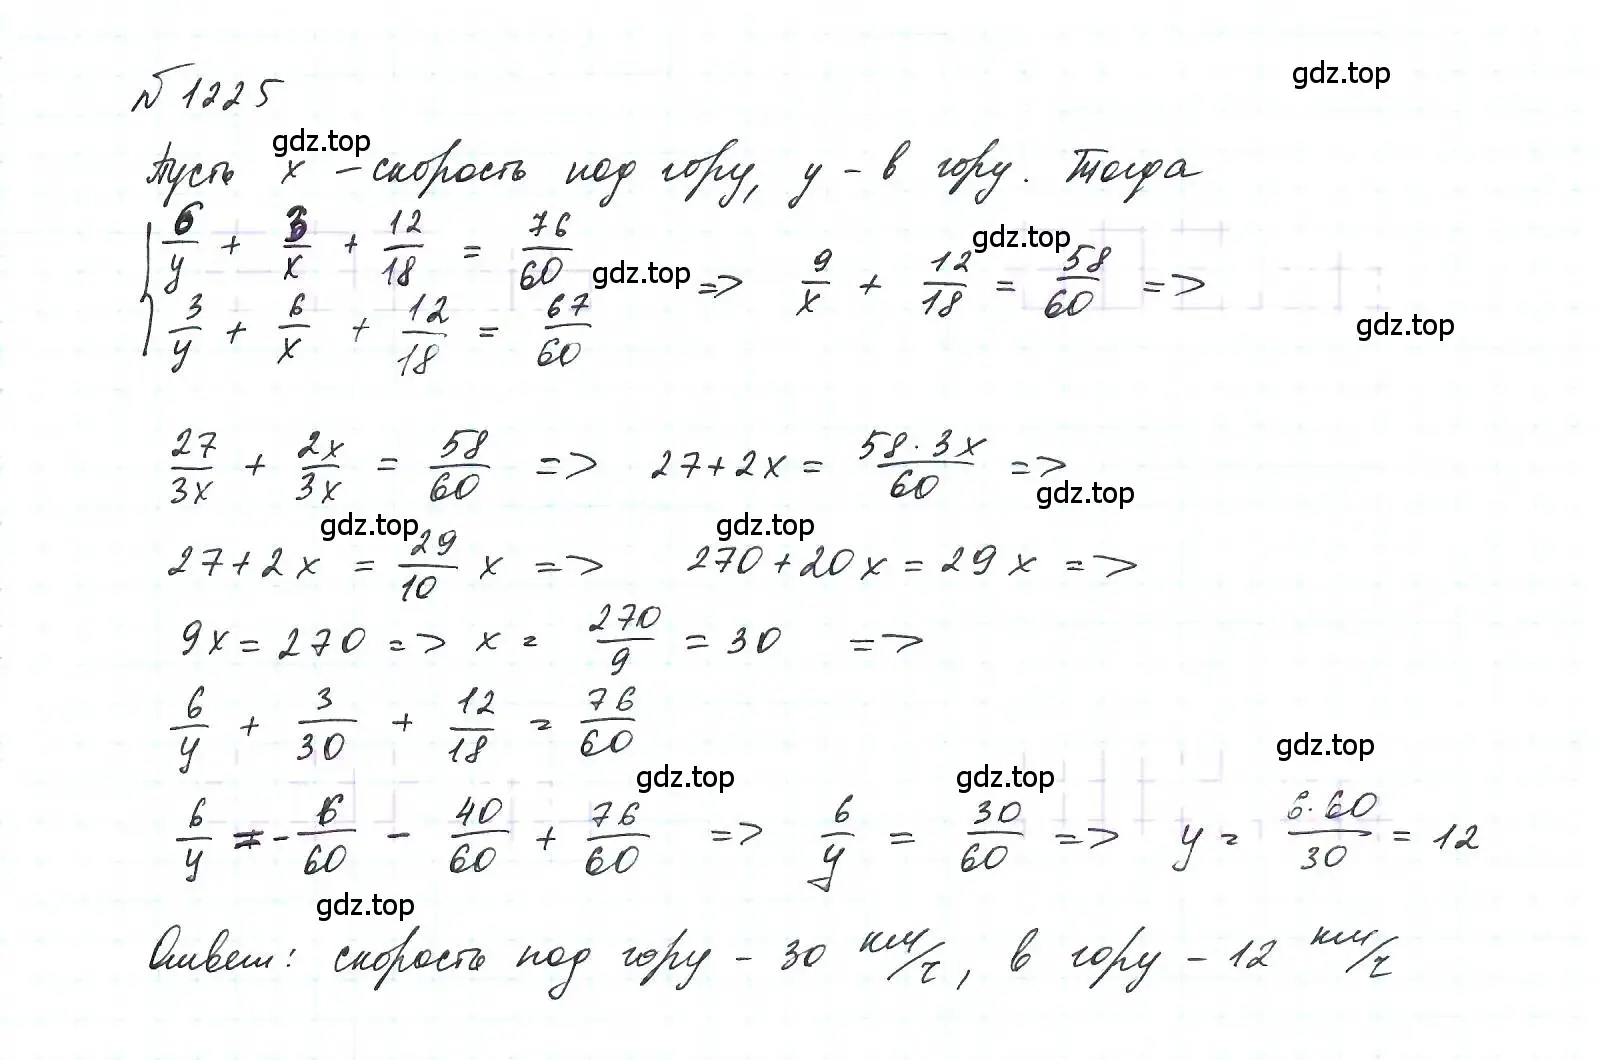 № 1225
gdz.top
gdz.top
Пусть x – скорость под гору, y – в гору. Тогда
6/y + 3/x + 12/18 = 76/60
3/y + 6/x + 12/18 = 67/60
gdz.top
=> 9/x + 12/18 = 58/60 =>
gdz.top
gdz.top
27/3x + 2x/3x = 58/60 => 27+2x = 58·3x/60 =>
gdz.top
gdz.top
gdz.top
27+2x = 29/10 x => 270+20x = 29x =>
9x = 270 => x = 270/9 = 30 =>
6/y + 3/30 + 12/18 = 76/60
gdz.top
gdz.top
gdz.top
6/y = - 6/60 - 40/60 + 76/60 => 6/y = 30/60 => y = 6·60/30 = 12
gdz.top
Ответ: скорость под гору – 30 км/ч, в гору – 12 км/ч